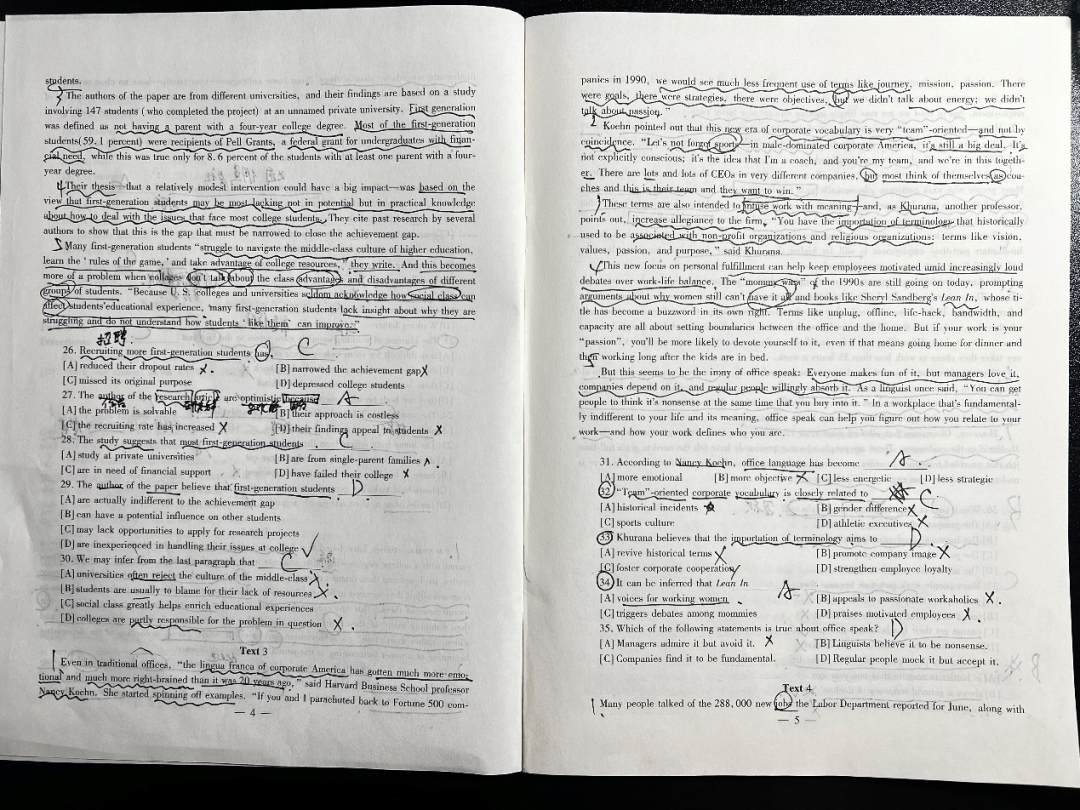 students.
The authors of the paper are from different universities, and their findings are based on a study
involving 147 students (who completed the project) at an unnamed private university. First generation
was defined as not having a parent with a four-year college degree. Most of the first-generation
students(59.1 percent) were recipients of Pell Grants, a federal grant for undergraduates with finan-
cial need, while this was true only for 8.6 percent of the students with at least one parent with a four-
year degree.
Their thesis—that a relatively modest intervention could have a big impact—was based on the
view that first-generation students may be most lacking not in potential but in practical knowledge
about how to deal with the issues that face most college students. They cite past research by several
authors to show that this is the gap that must be narrowed to close the achievement gap.
Many first-generation students "struggle to navigate the middle-class culture of higher education,
learn the 'rules of the game,' and take advantage of college resources," they write. And this becomes
more of a problem when colleges don't talk about the class advantages and disadvantages of different
groups of students. "Because U.S. colleges and universities seldom acknowledge how social class can
affect students'educational experience, many first-generation students lack insight about why they are
struggling and do not understand how students 'like them' can improve."
招聘
26. Recruiting more first-generation students has C
[A] reduced their dropout rates X. [B] narrowed the achievement gap X
[C] missed its original purpose [D] depressed college students
27. The author of the research article are optimistic because A
[A] the problem is solvable [B] their approach is costless
[C] the recruiting rate has increased X [D] their findings appeal to students X
28. The study suggests that most first-generation students C
[A] study at private universities [B] are from single-parent families
[C] are in need of financial support [D] have failed their college X
29. The author of the paper believe that first-generation students D
[A] are actually indifferent to the achievement gap
[B] can have a potential influence on other students
[C] may lack opportunities to apply for research projects
[D] are inexperienced in handling their issues at college √
30. We may infer from the last paragraph that C
[A] universities often reject the culture of the middle-class X.
[B] students are usually to blame for their lack of resources X.
[C] social class greatly helps enrich educational experiences
[D] colleges are partly responsible for the problem in question X.
Text 3
1 Even in traditional offices, "the lingua franca of corporate America has gotten much more emo-
tional and much more right-brained than it was 20 years ago," said Harvard Business School professor
Nancy Koehn. She started spinning off examples. "If you and I parachuted back to Fortune 500 com-
— 4 —
panies in 1990, we would see much less frequent use of terms like journey, mission, passion. There
were goals, there were strategies, there were objectives, but we didn't talk about energy; we didn't
talk about passion."
2 Koehn pointed out that this new era of corporate vocabulary is very "team"-oriented—and not by
coincidence. "Let's not forget sports—in male-dominated corporate America, it's still a big deal. It's
not explicitly conscious; it's the idea that I'm a coach, and you're my team, and we're in this togeth-
er. There are lots and lots of CEOs in very different companies, but most think of themselves as coa-
ches and this is their team and they want to win."
3 These terms are also intended to infuse work with meaning—and, as Khurana, another professor,
points out, increase allegiance to the firm. "You have the importation of terminology that historically
used to be associated with non-profit organizations and religious organizations: terms like vision,
values, passion, and purpose," said Khurana.
4 This new focus on personal fulfillment can help keep employees motivated amid increasingly loud
debates over work-life balance. The "mommy wars" of the 1990s are still going on today, prompting
arguments about why women still can't have it all and books like Sheryl Sandberg's Lean In, whose ti-
tle has become a buzzword in its own right. Terms like unplug, offline, life-hack, bandwidth, and
capacity are all about setting boundaries between the office and the home. But if your work is your
"passion", you'll be more likely to devote yourself to it, even if that means going home for dinner and
then working long after the kids are in bed.
But this seems to be the irony of office speak: Everyone makes fun of it, but managers love it,
companies depend on it, and regular people willingly absorb it. As a linguist once said, "You can get
people to think it's nonsense at the same time that you buy into it." In a workplace that's fundamental-
ly indifferent to your life and its meaning, office speak can help you figure out how you relate to your
work—and how your work defines who you are.
31. According to Nancy Koehn, office language has become A.
[A] more emotional [B] more objective X [C] less energetic [D] less strategic
32. "Team"-oriented corporate vocabulary is closely related to C
[A] historical incidents [B] gender difference X
[C] sports culture [D] athletic executives X
33. Khurana believes that the importation of terminology aims to D
[A] revive historical terms X [B] promote company image X
[C] foster corporate cooperation [D] strengthen employee loyalty
34. It can be inferred that Lean In A
[A] voices for working women [B] appeals to passionate workaholics X.
[C] triggers debates among mommies [D] praises motivated employees X.
35. Which of the following statements is true about office speak? D
[A] Managers admire it but avoid it. X [B] Linguists believe it to be nonsense.
[C] Companies find it to be fundamental. [D] Regular people mock it but accept it.
Text 4
1 Many people talked of the 288,000 new jobs the Labor Department reported for June, along with
— 5 —